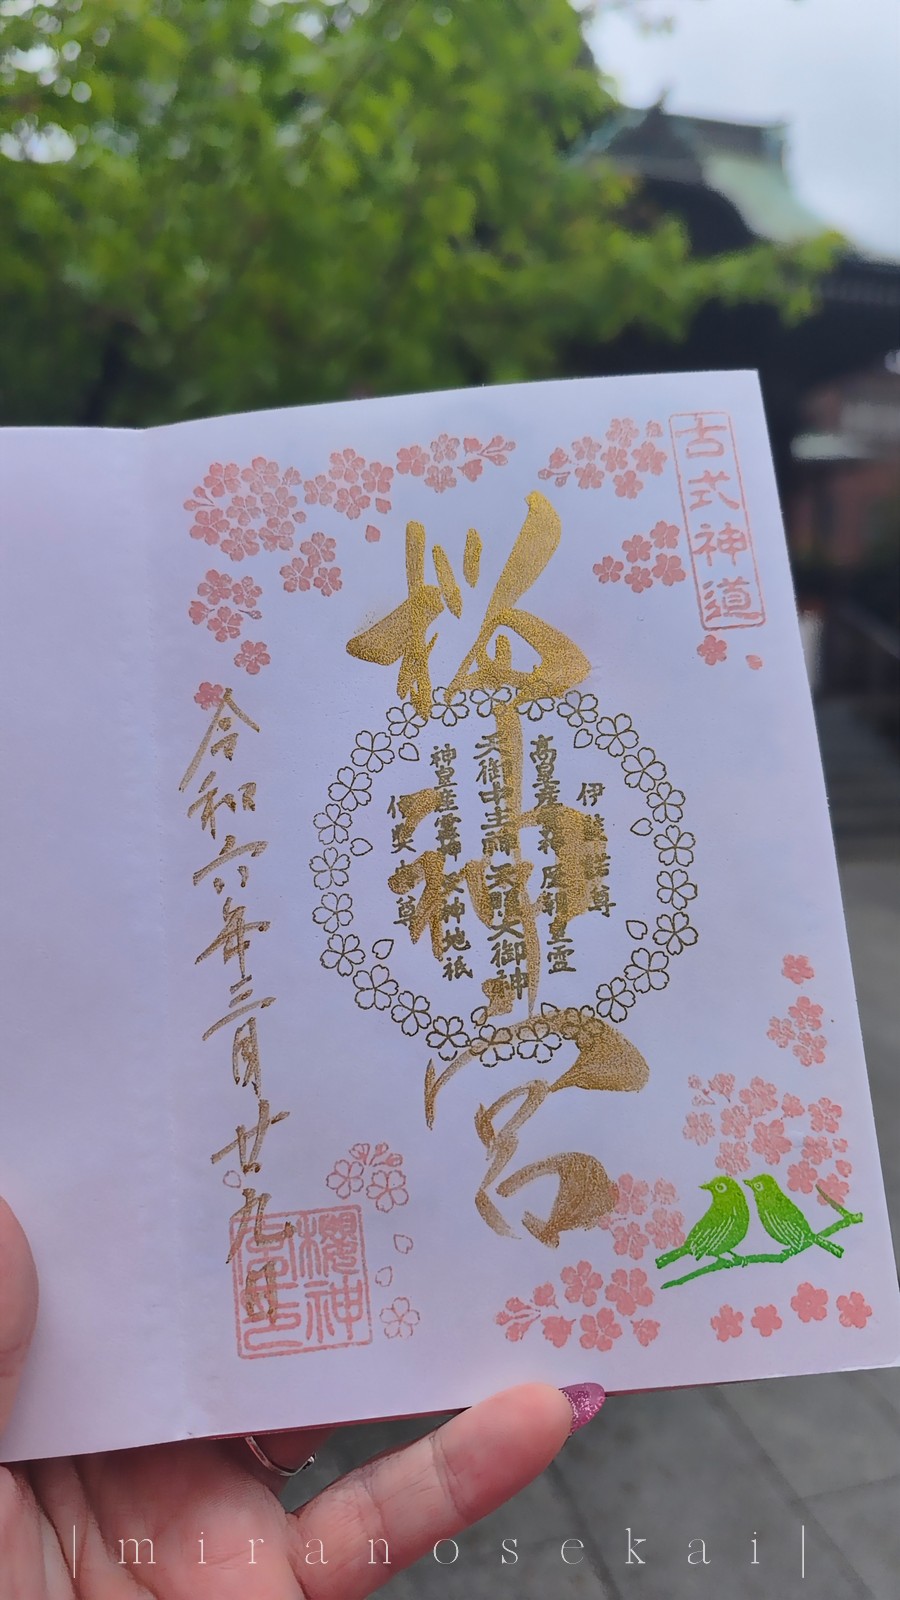 古式神道
桜神宮
伊弉諾尊
高皇産霊神 歴朝皇霊
天御中主神 天照大御神
神皇産霊神 天神地祇
伊弉冉尊
令和六年三月廿九日
櫻神
宮印
|miranosekai|